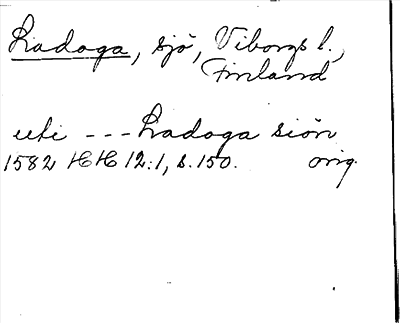 Ladoga, sjö, Viborgs l.,
Finland
uti --- Ladoga siön
1582 HH 12:1, s. 150. orig.